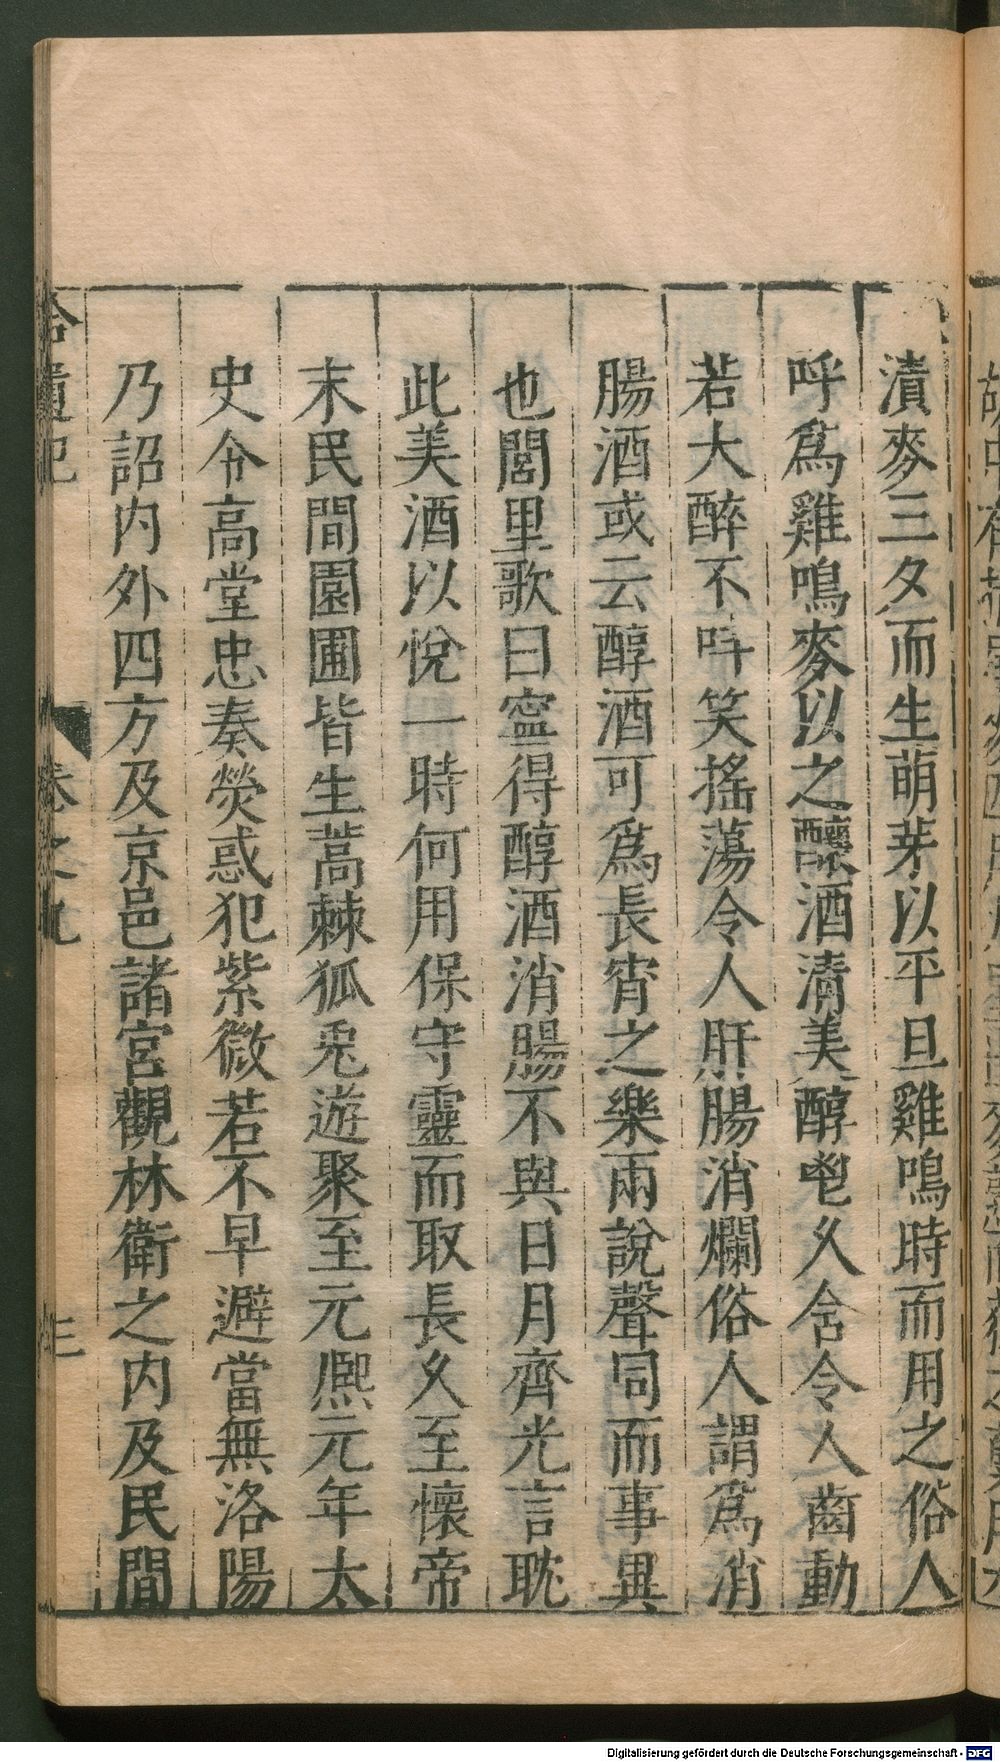 漬麥三夕而生萌芽以平旦雞鳴時而用之俗人
呼爲雞鳴麥以之釀酒清美醇鬯久含令人齒動
若大醉不叫笑搖蕩令人肝腸消爛俗人謂爲消
腸酒或云醇酒可爲長宵之樂兩說聲同而事異
也閭里歌曰寧得醇酒消腸不與日月齊光言耽
此美酒以悅一時何用保守靈而取長久至懷帝
末民間園圃皆生蒿棘狐兎遊聚至元熈元年太
史令高堂忠奏熒惑犯紫微若不早避當無洛陽
乃詔内外四方及京邑諸宮觀林衛之内及民間
拾遺記
卷之九
Digitalisierung gefördert durch die Deutsche Forschungsgemeinschaft - DFG